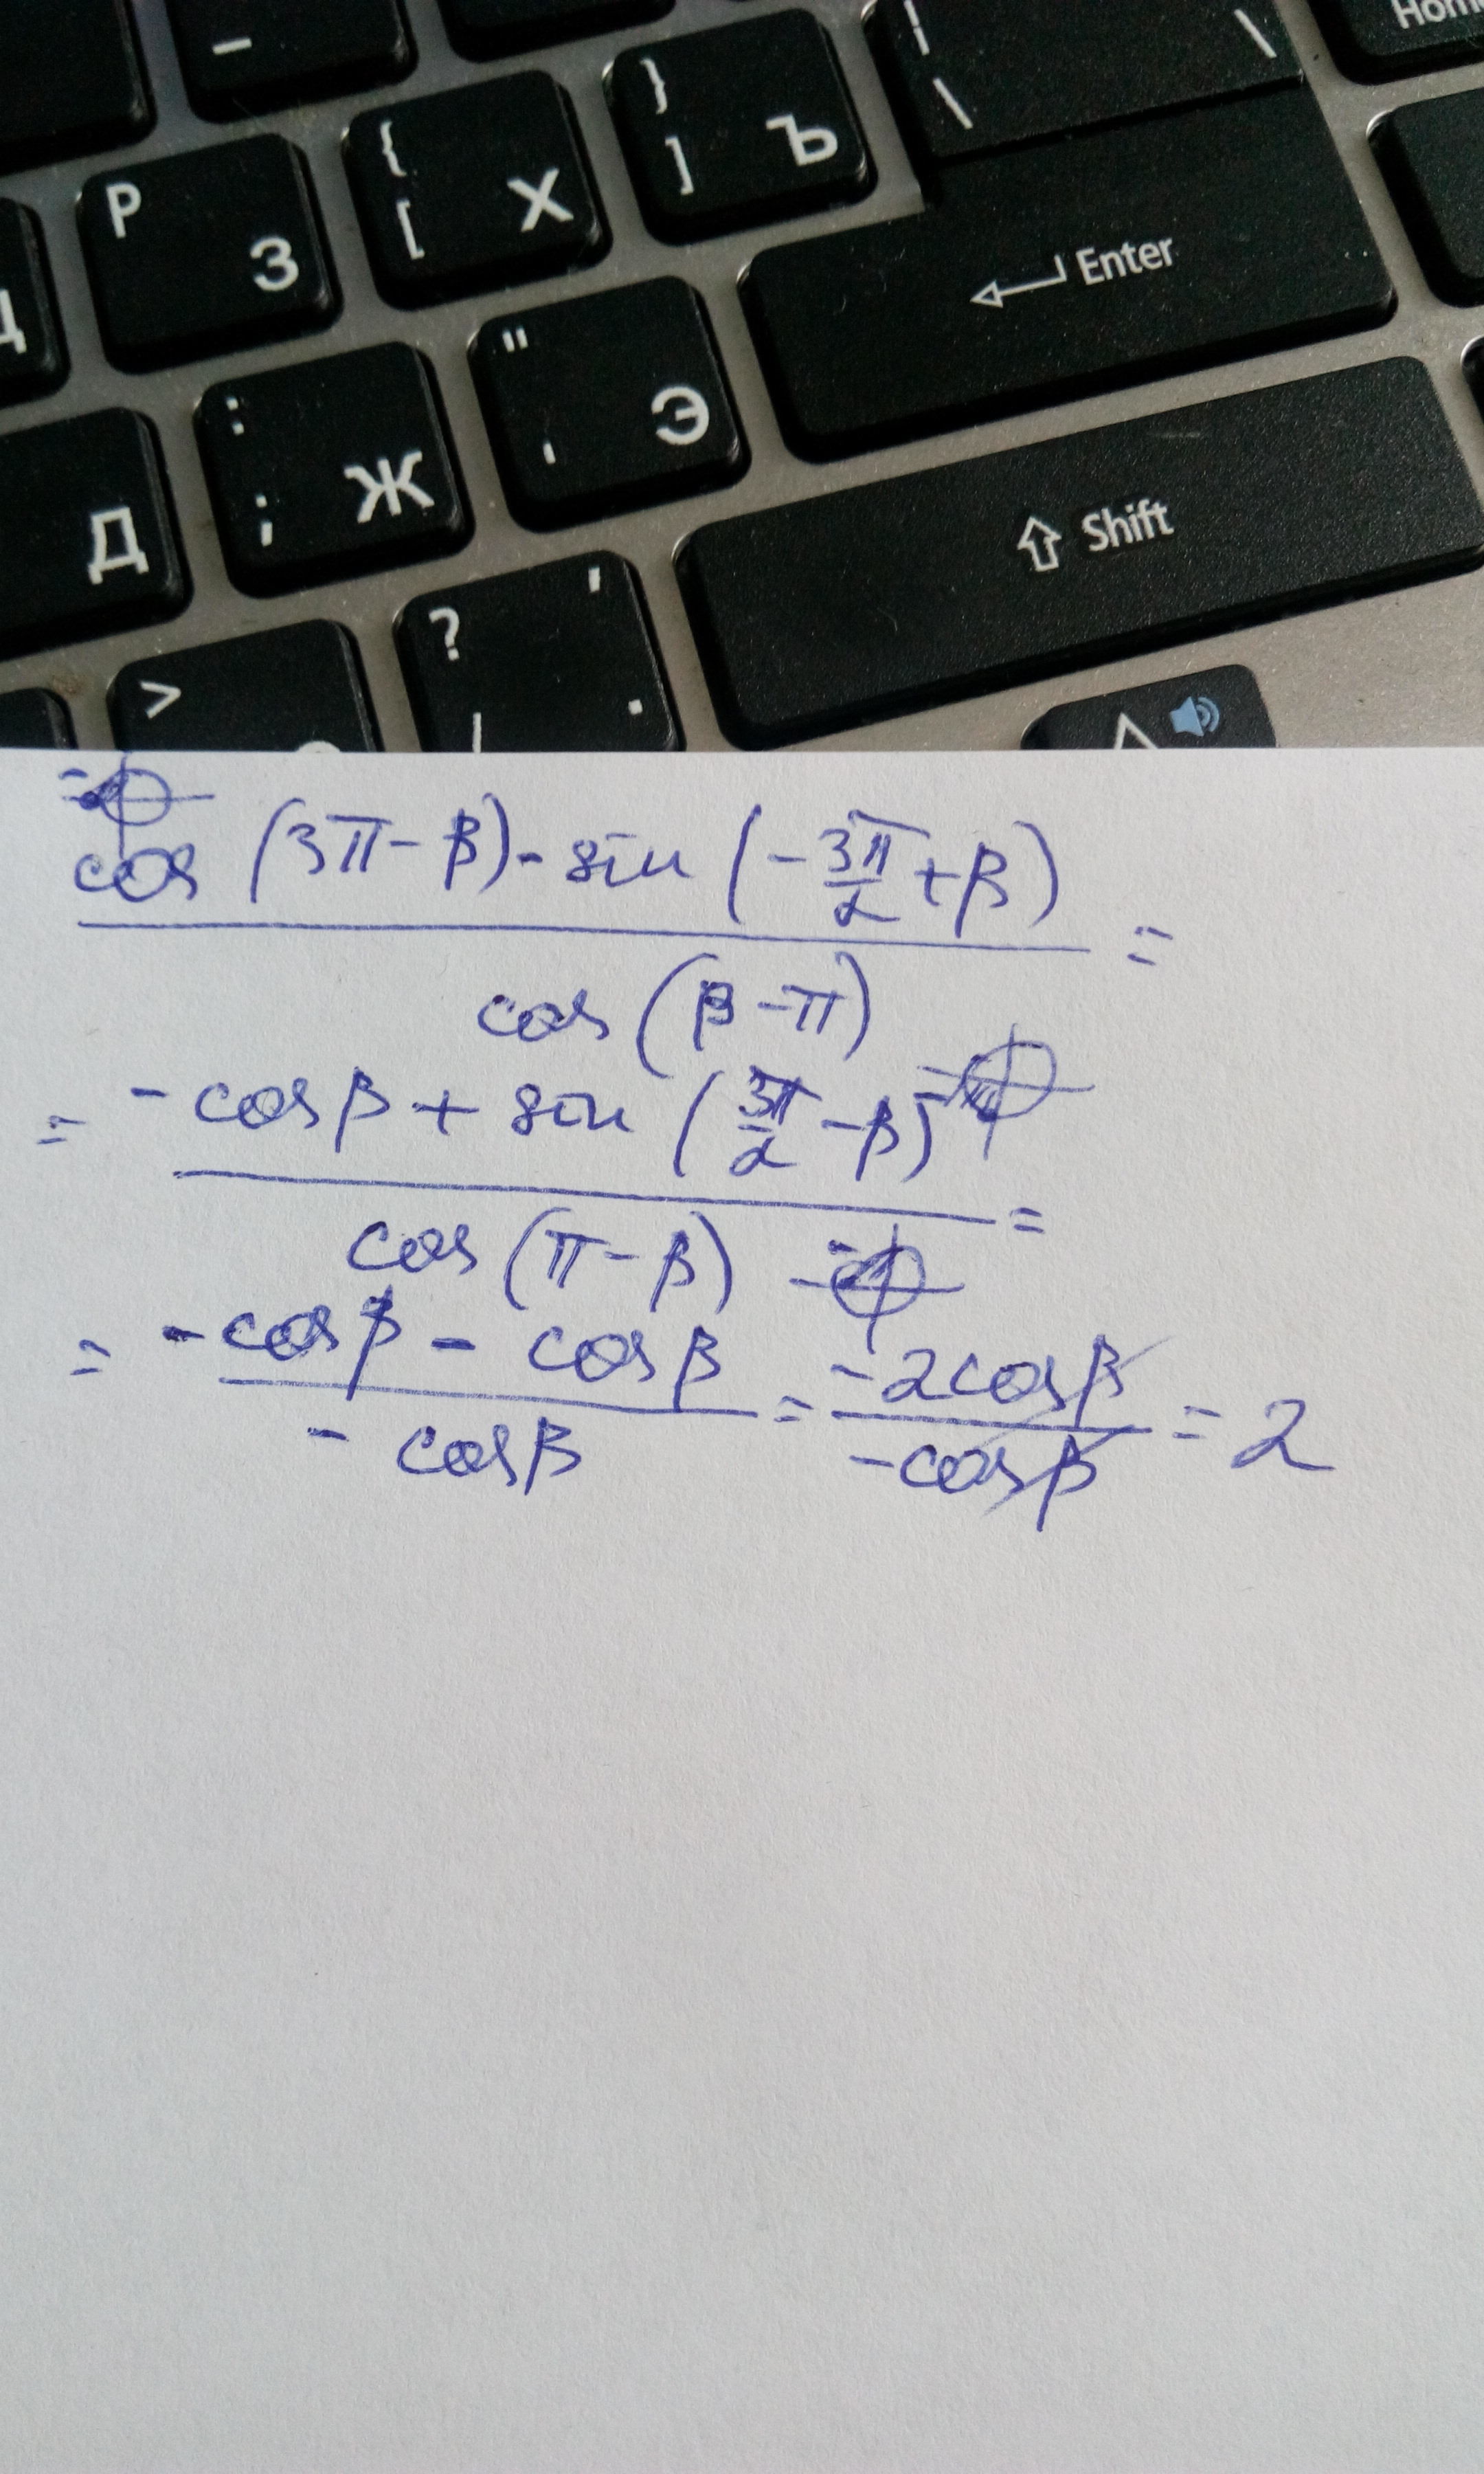 Home
_
| \
\
P З
{ [ Х
} ] Ъ
Enter
Д
: ; Ж
" ' Э
Shift
>
? , / .
cos (3π - β) - sin (- 3π/2 + β)
=
cos (β - π)
= - cos β + sin (3π/2 - β)
=
cos (π - β)
= - cos β - cos β = - 2 cos β = 2
- cos β - cos β